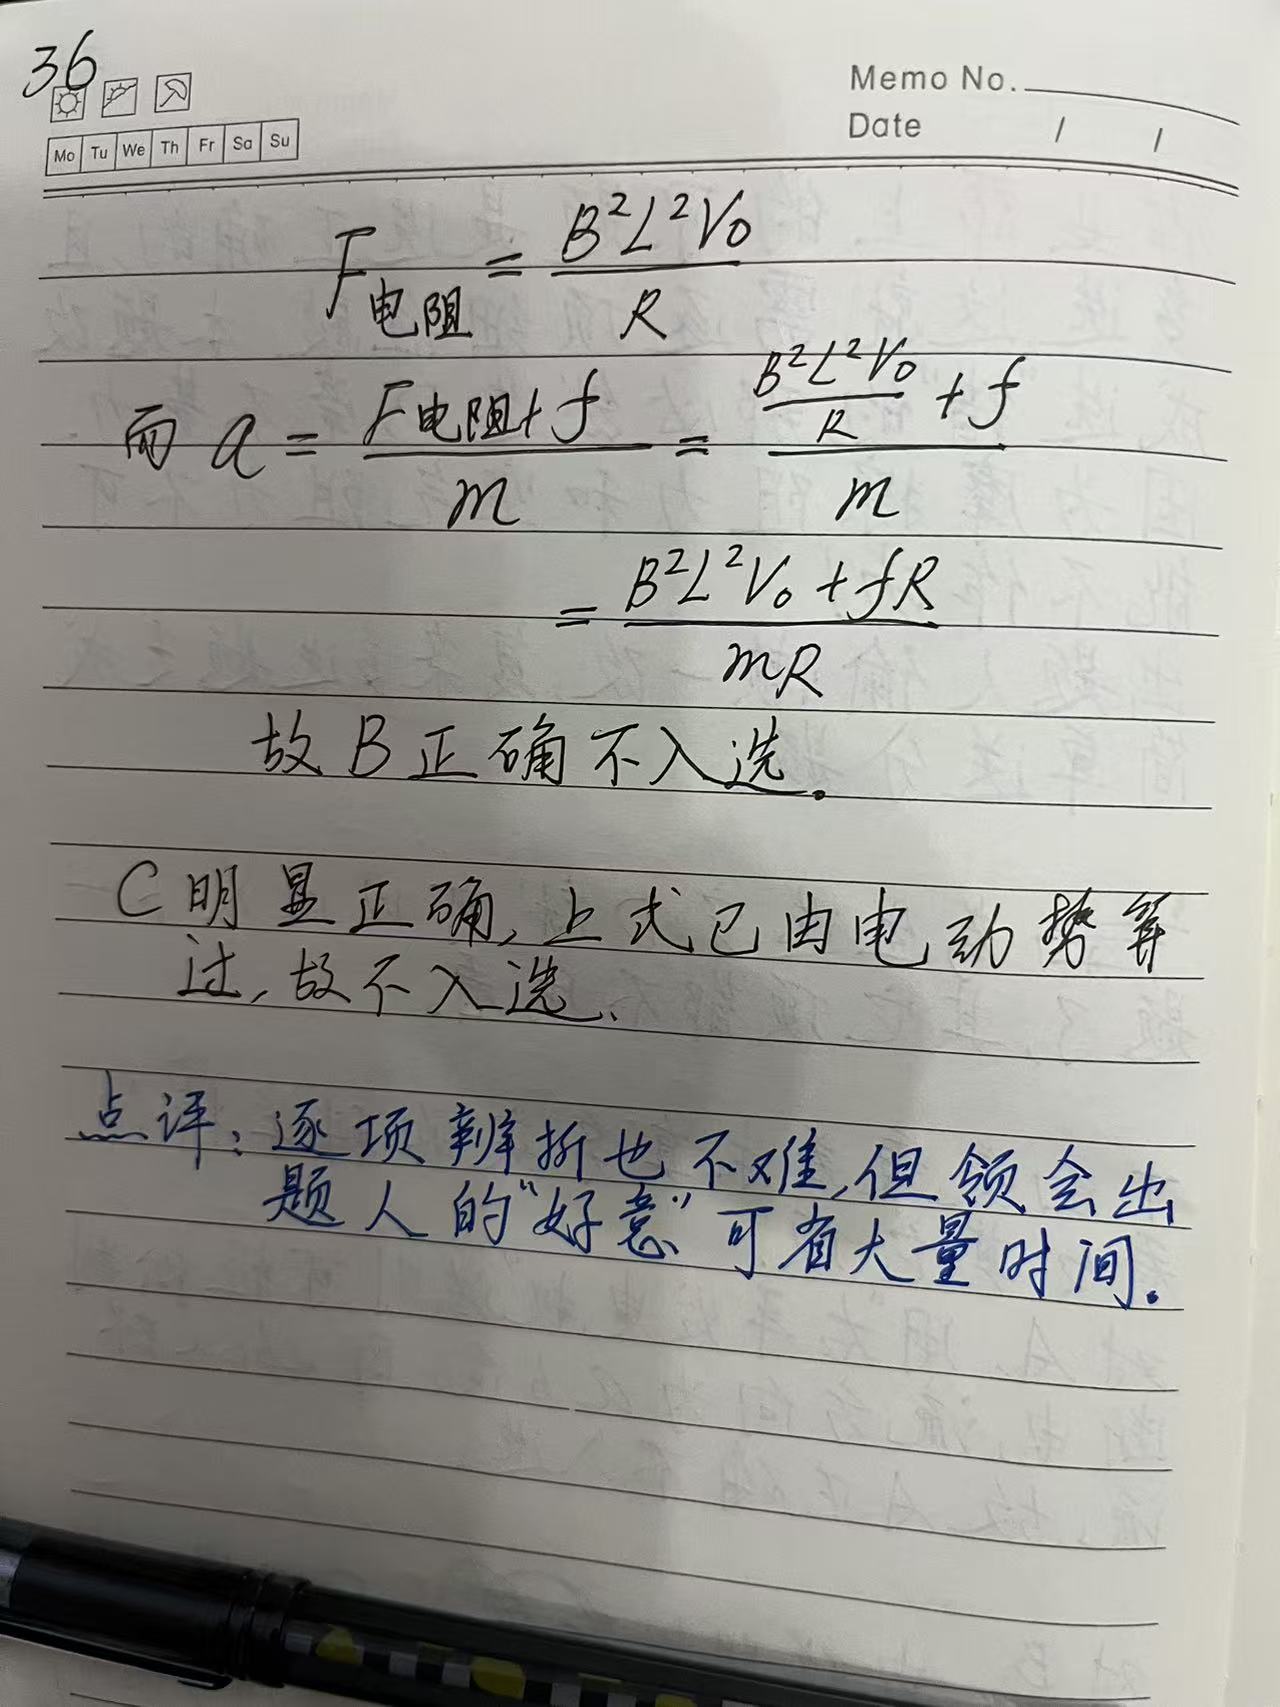 36
Memo No.
Date / /
Mo Tu We Th Fr Sa Su
F电阻 = B²L²V₀ / R
而 a = (F电阻+f) / m = (B²L²V₀/R + f) / m
= (B²L²V₀ + fR) / mR
故B正确不入选.
C明显正确,上式已由电动势算
过,故不入选.
点评:逐项辨折也不难,但领会出
题人的“好意”可省大量时间.